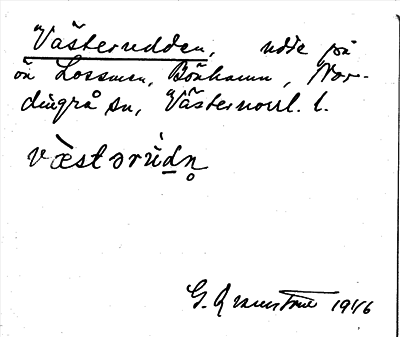 Västerudden, udde på
ön Lossmen, Bönhamn, Nor-
dingrå sn, Västernorrl. l.
væstərùdn̥
G. 1946